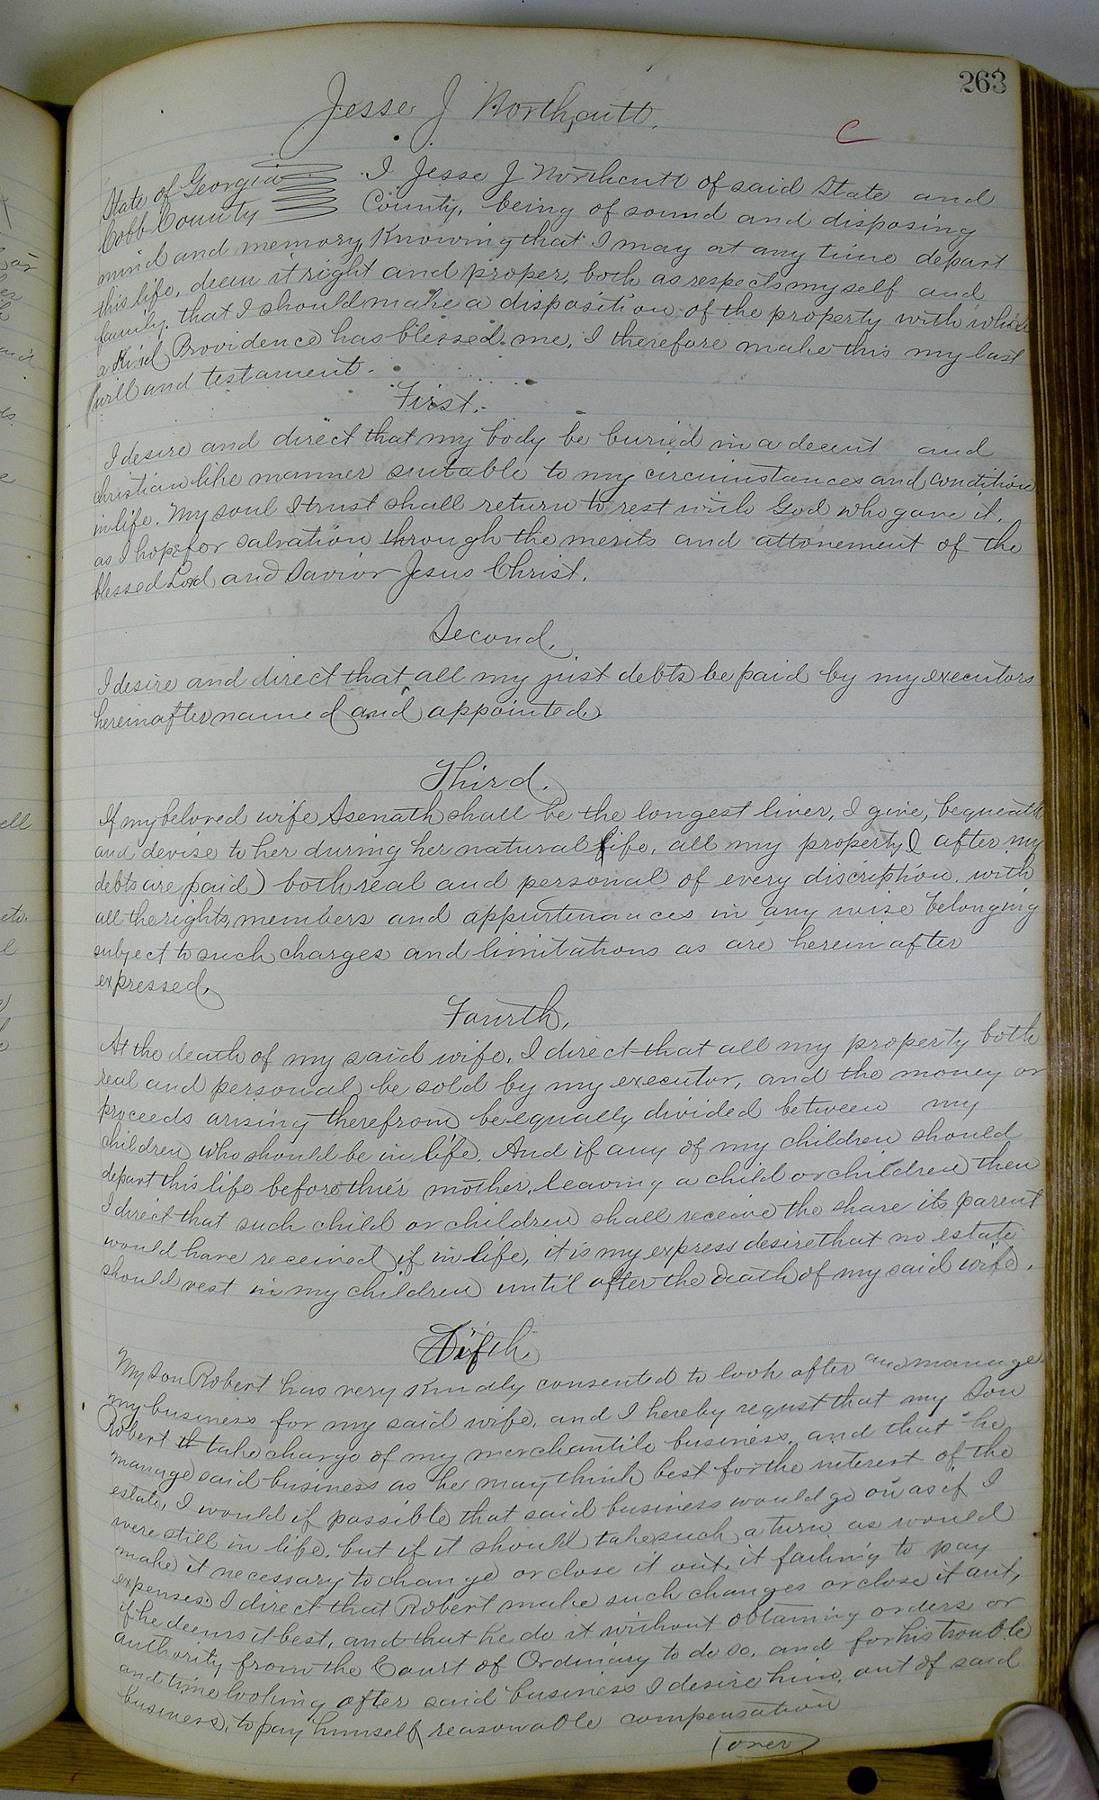 263
Jesse J Northcutt.
C
State of Georgia
Cobb County
I Jesse J Northcutt of said State and
County, being of sound and disposing
mind and memory, Knowing that I may at any time depart
this life, deem it right and proper, both as respects myself and
family, that I should make a disposition of the property with which
a Kind Providence has blessed me, I therefore make this my last
will and testament.
First.
I desire and direct that my body be buried in a decent and
christian like manner suitable to my circumstances and condition
in life. My soul I trust shall return to rest with God who gave it,
as I hope for salvation through the merits and attonement of the
blessed Lord and Savior Jesus Christ.
Second.
I desire and direct that all my just debts be paid by my executors
hereinafter named and appointed.
Third.
If my beloved wife Asenath shall be the longest liver, I give, bequeath
and devise to her during her natural life, all my property (after my
debts are paid) both real and personal of every discription. with
all the rights, members and appurtenances in any wise belonging
subject to such charges and limitations as are herein after
expressed.
Fourth.
At the death of my said wife, I direct that all my property both
real and personal be sold by my executor, and the money or
proceeds arising therefrom be equally divided between my
children who should be in life. And if any of my children should
depart this life before thier mother, leaving a child or children then
I direct that such child or children shall receive the share its parent
would have received if in life, it is my express desire that no estate
should vest in my children until after the death of my said wife.
Fifth
My son Robert has very kindly consented to look after and manage
my business for my said wife, and I hereby requst that my Son
Robert take charge of my merchantile business, and that he
manage said business as he may think best for the interest of the
estate, I would if possible that said business would go on as if I
were still in life, but if it should take such a turn as would
make it necessary to change or close it out, it failing to pay
expenses I direct that Robert make such changes or close it out,
if he deems it best, and that he do it without obtaining orders or
authority from the Court of Ordinary to do so, and for his trouble
and time looking after said business I desire him, out of said
business, to pay himself reasonable compensation
(over)